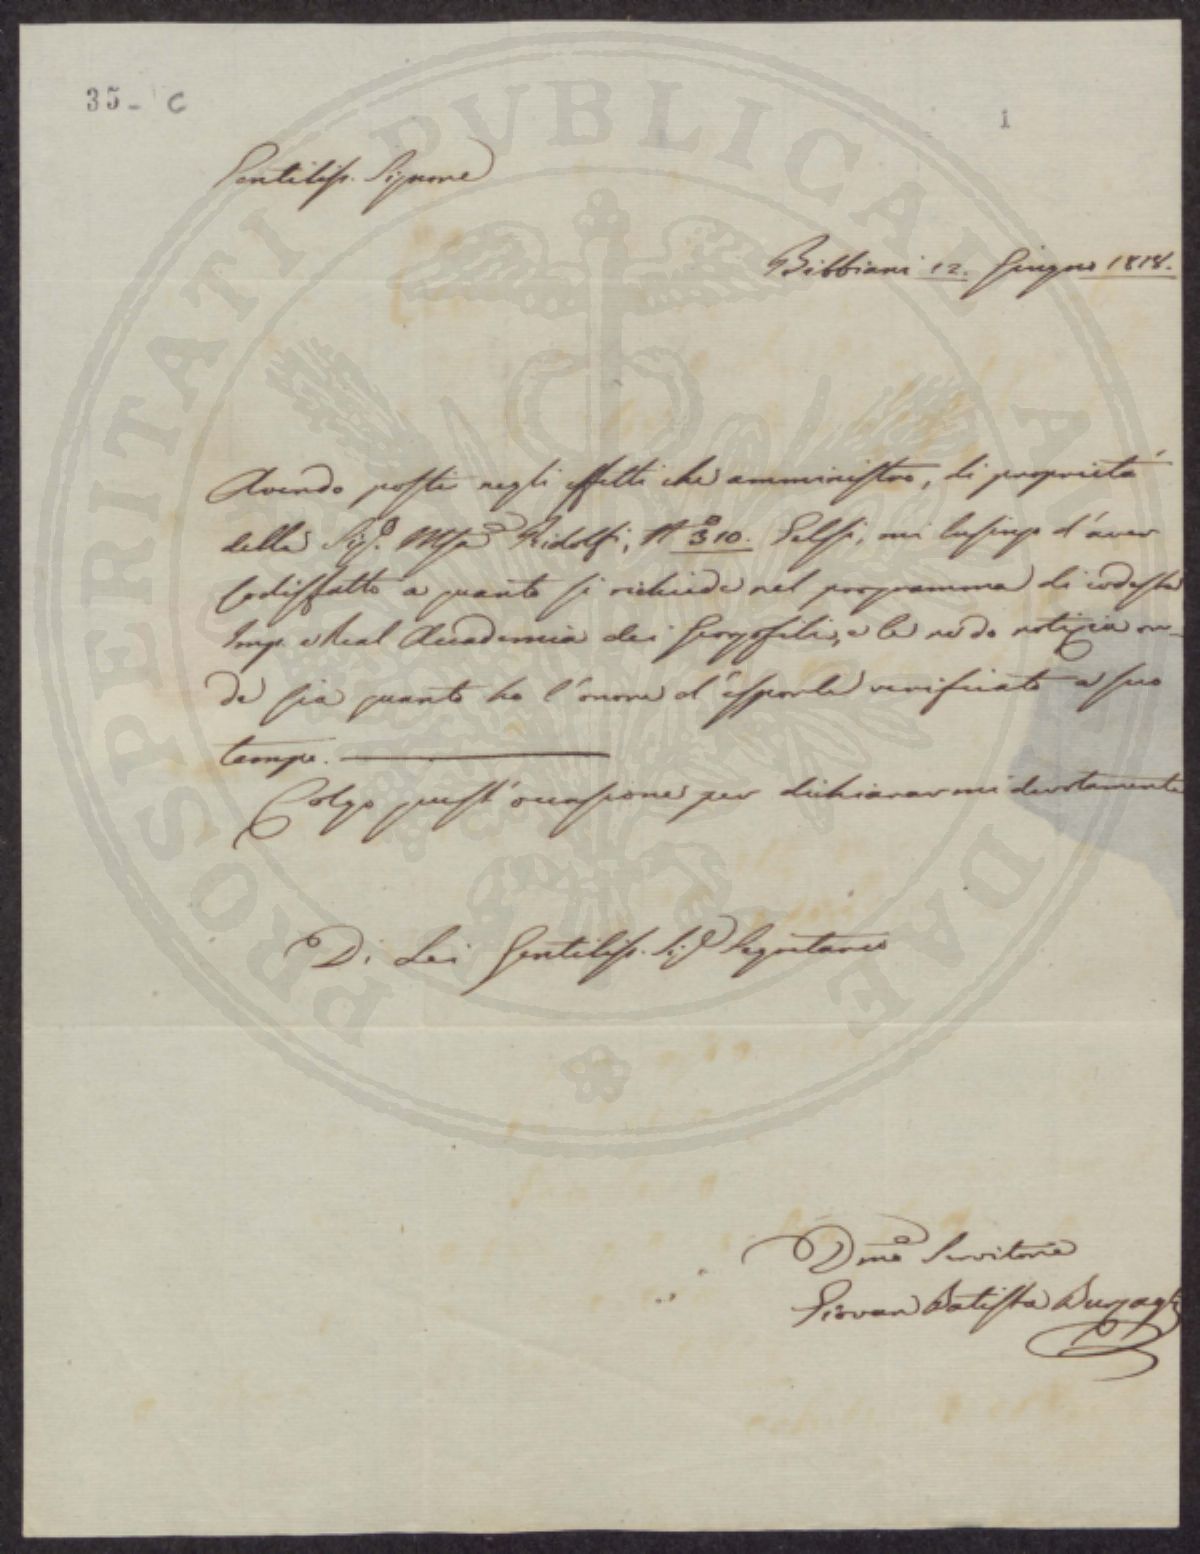 35 - C
1
Gentiliss. Signore
Bibbiani 12. Giugno 1818.
Avendo posti negli effetti che amministro, di proprietà
della Sig.a M.sa Ridolfi, N.o 310. Gelsi, mi lusingo d'aver
sodisfatto a quanto si richiede nel programma di codesta
Imp. e Real Accademia dei Georgofili, e le ne do notizia on-
de sia quanto ho l'onore d'esporle verificato a suo
tempo.
Colgo quest'occasione per dichiararmi devotamente
Di Lei Gentiliss. Sig.e Segretario
D.mo Servitore
Giovan Batista Buzzagli
PROSPERITATI PUBLICAE AUGENDAE